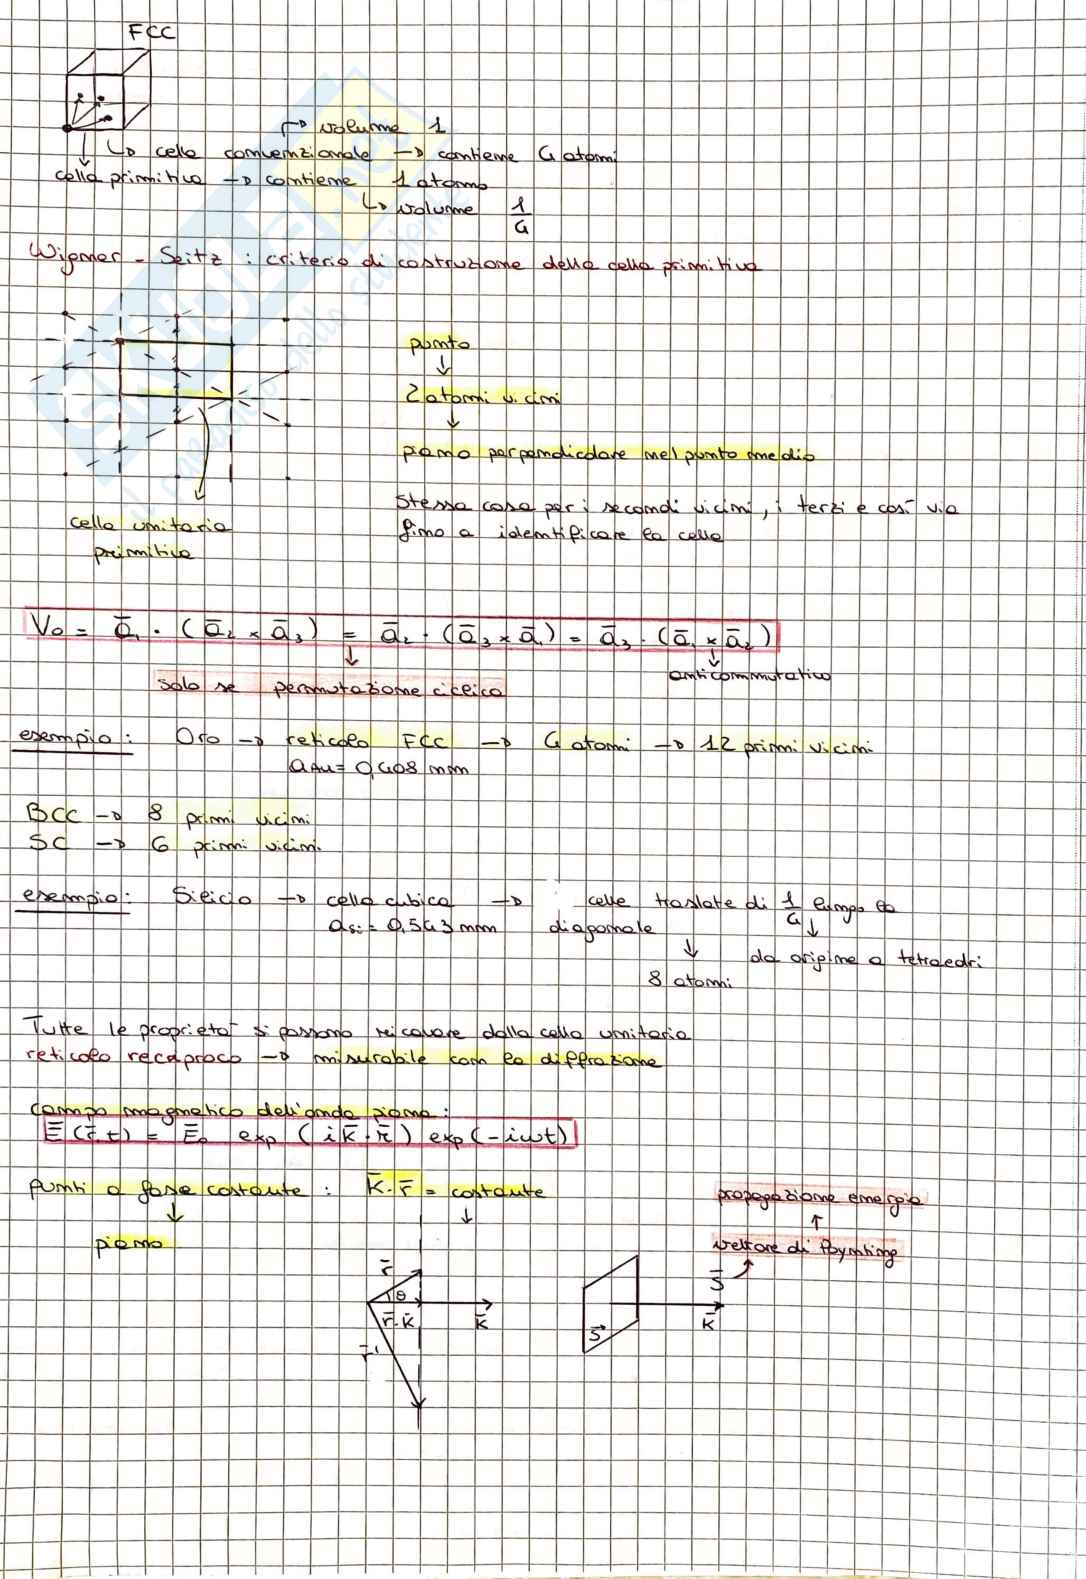 FCC
↱ volume 1
↳ cella convenzionale → contiene 4 atomi
cella primitiva → contiene 1 atomo
↳ volume 1/4
Wigner - Seitz : criterio di costruzione della cella primitiva
punto
↓
2 atomi vicini
↓
piano perpendicolare nel punto medio
Stessa cosa per i secondi vicini, i terzi e così via
fino a identificare la cella
cella unitaria
primitiva
V₀ = ā₁ · (ā₂ × ā₃) = ā₂ · (ā₃ × ā₁) = ā₃ · (ā₁ × ā₂)
↓ ↓
solo se permutazione ciclica anticommutativo
esempio: Oro → reticolo FCC → 4 atomi → 12 primi vicini
a_Au = 0,408 nm
BCC → 8 primi vicini
SC → 6 primi vicini
esempio: Silicio → cella cubica → celle traslate di 1/4 lungo la
a_Si = 0,543 nm diagonale
↓ ↓ da origine a tetraedri
8 atomi
Tutte le proprietà si possono ricavare dalla cella unitaria
reticolo reciproco → misurabile con la diffrazione
campo magnetico dell'onda piana:
Ē(r̄,t) = Ē₀ exp (i k̄·r̄) exp(-iωt)
punti a fase costante : k̄·r̄ = costante
↓ ↓
piano
propagazione energia
↑
vettore di Poynting
r̄ θ r̄·k̄ k̄ r̄'
S̄ S⃗ k̄